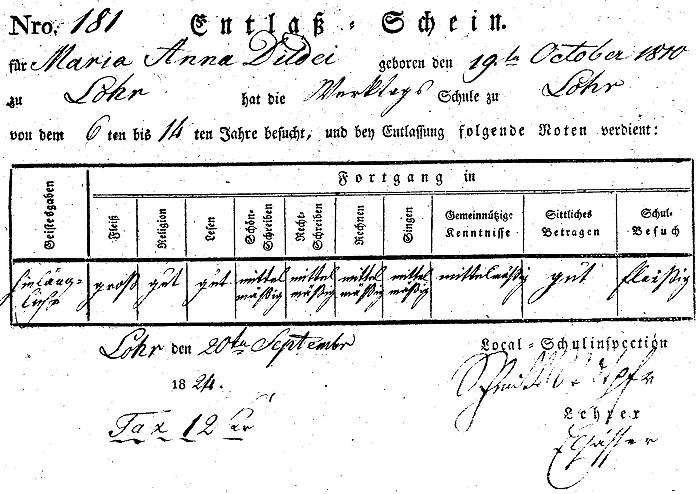 Nro. 181 Entlaß-Schein.
für Maria Anna Dildei geboren den 19ten October 1810
zu Lohr hat die Werktags Schule zu Lohr
von dem 6 ten bis 14 ten Jahre besucht, und bey Entlassung folgende Noten verdient:
Geistesgaben
Fortgang in
Fleiß Religion Lesen Schön-Schreiben Recht-Schreiben Rechnen Singen Gemeinnützige Kenntnisse Sittliches Betragen Schul-Besuch
hinläng-
lich groß gut gut mittelmäßig mittelmäßig mittelmäßig mittelmäßig mittelmäßig gut fleißig
Lohr den 20ten September Local-Schulinspection
1824.
Tax 12 Kr Lehrer